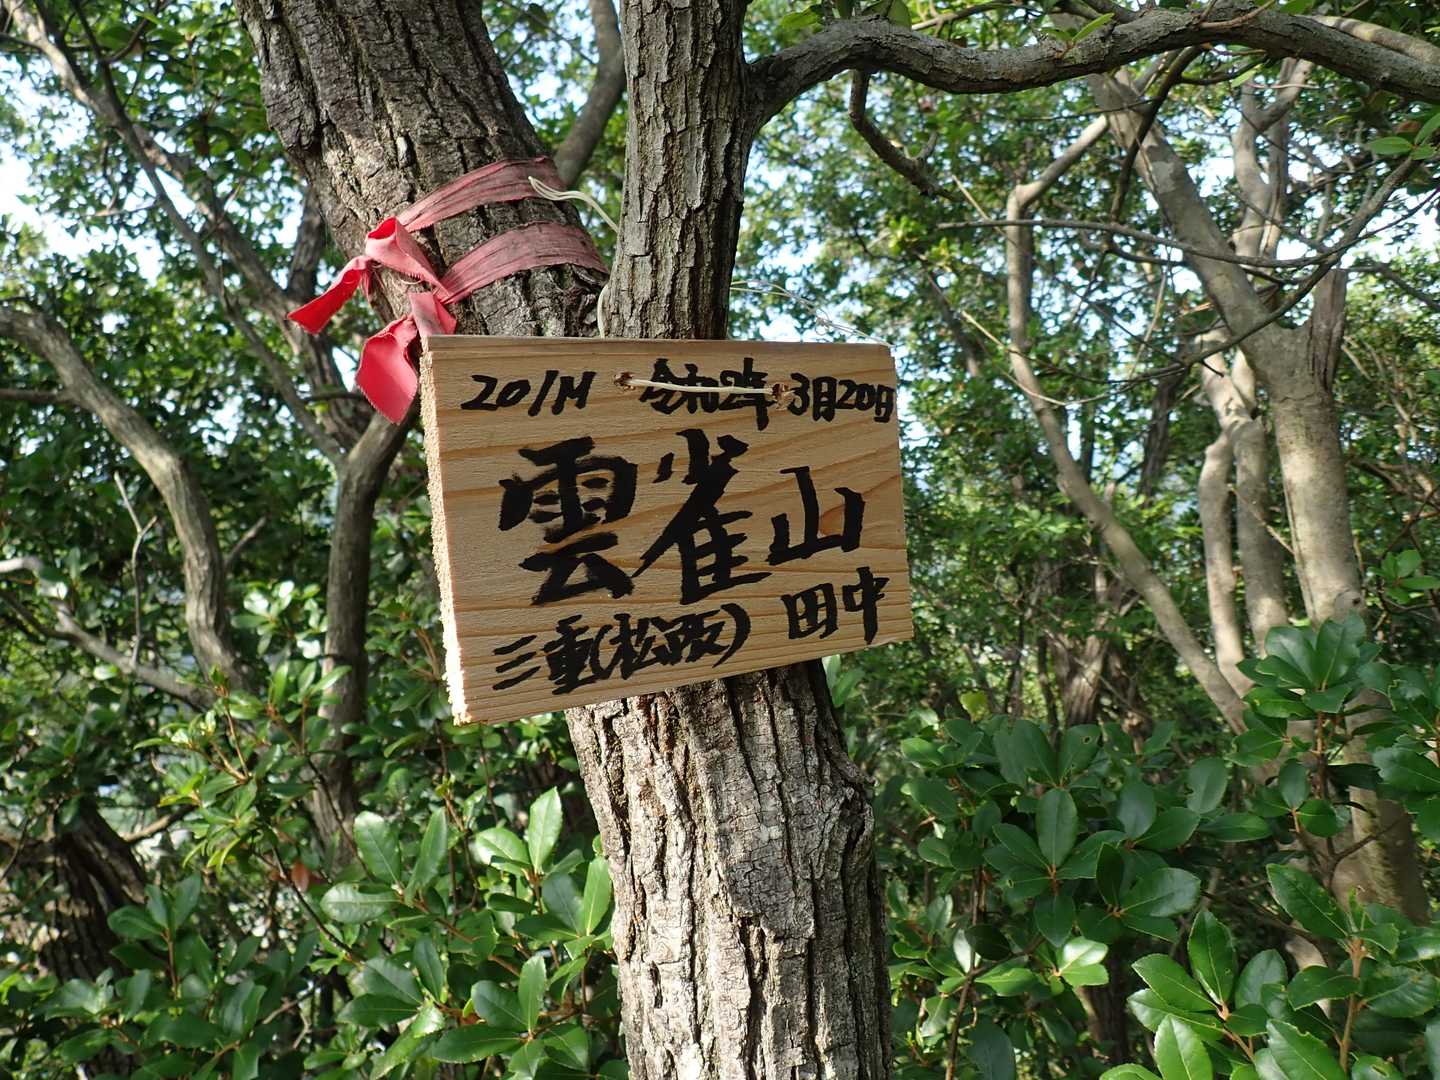 201M 令和2年3月20日
雲雀山
三重(松阪) 田中